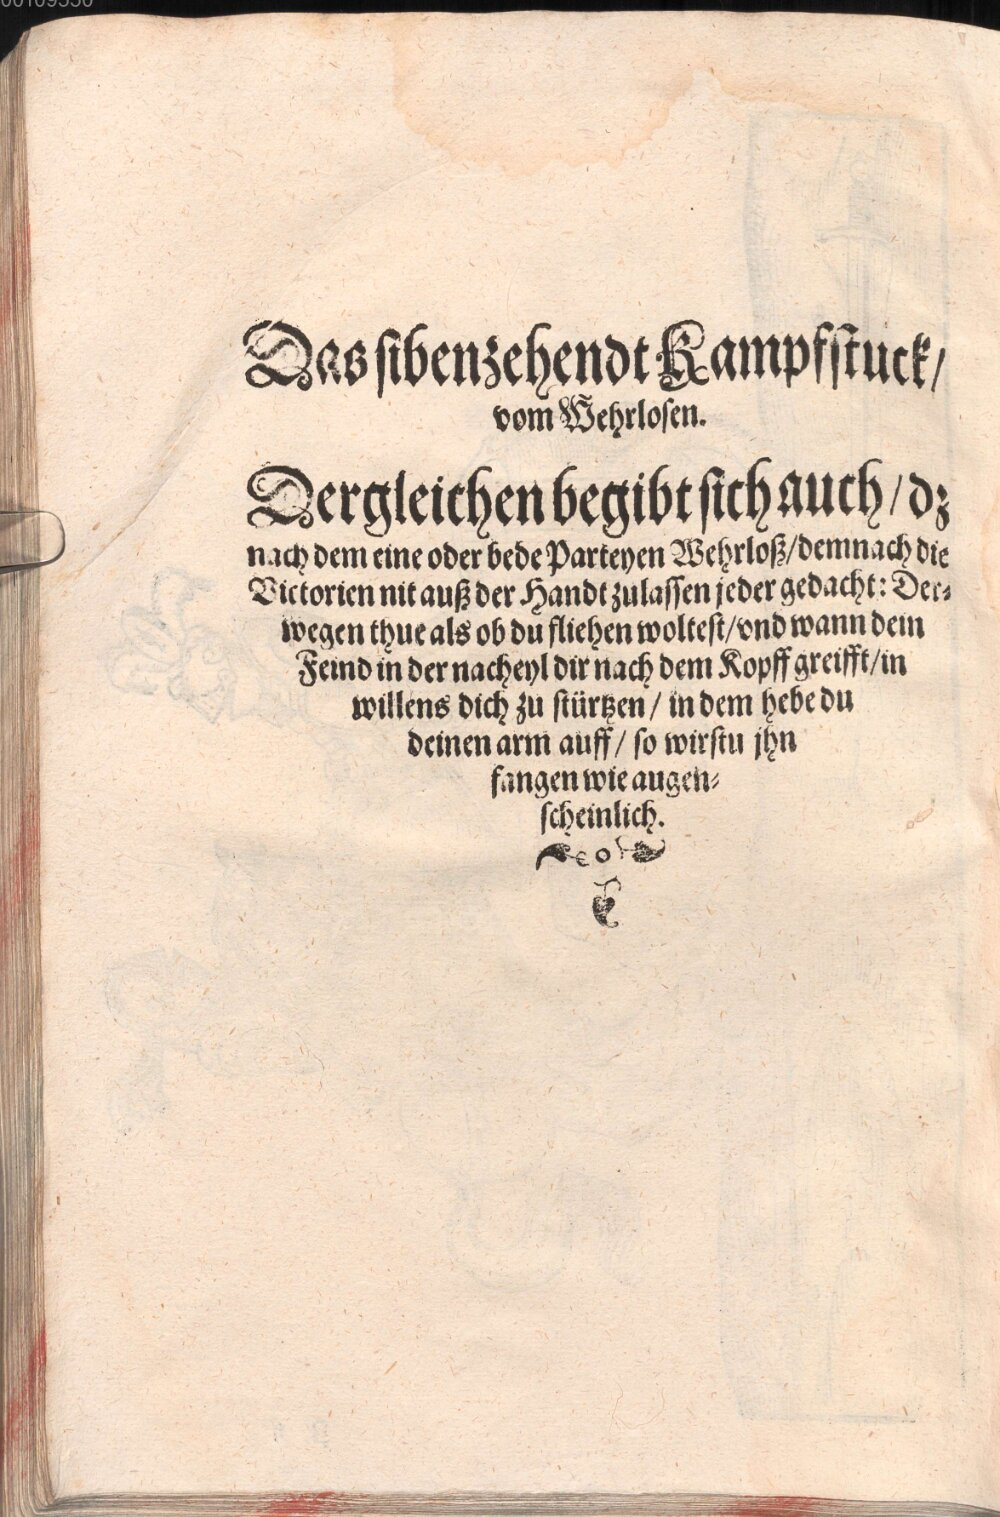 Das sibenzehendt Kampfstuck/
vom Wehrlosen.
Dergleichen begibt sich auch/ dz
nach dem eine oder bede Parteyen Wehrloß/ demnach die
Victorien nit auß der Handt zulassen jeder gedacht: Der⸗
wegen thue als ob du fliehen woltest/ vnd wann dein
Feind in der nacheyl dir nach dem Kopff greifft/ in
willens dich zu stürtzen/ in dem hebe du
deinen arm auff/ so wirstu jhn
fangen wie augen⸗
scheinlich.